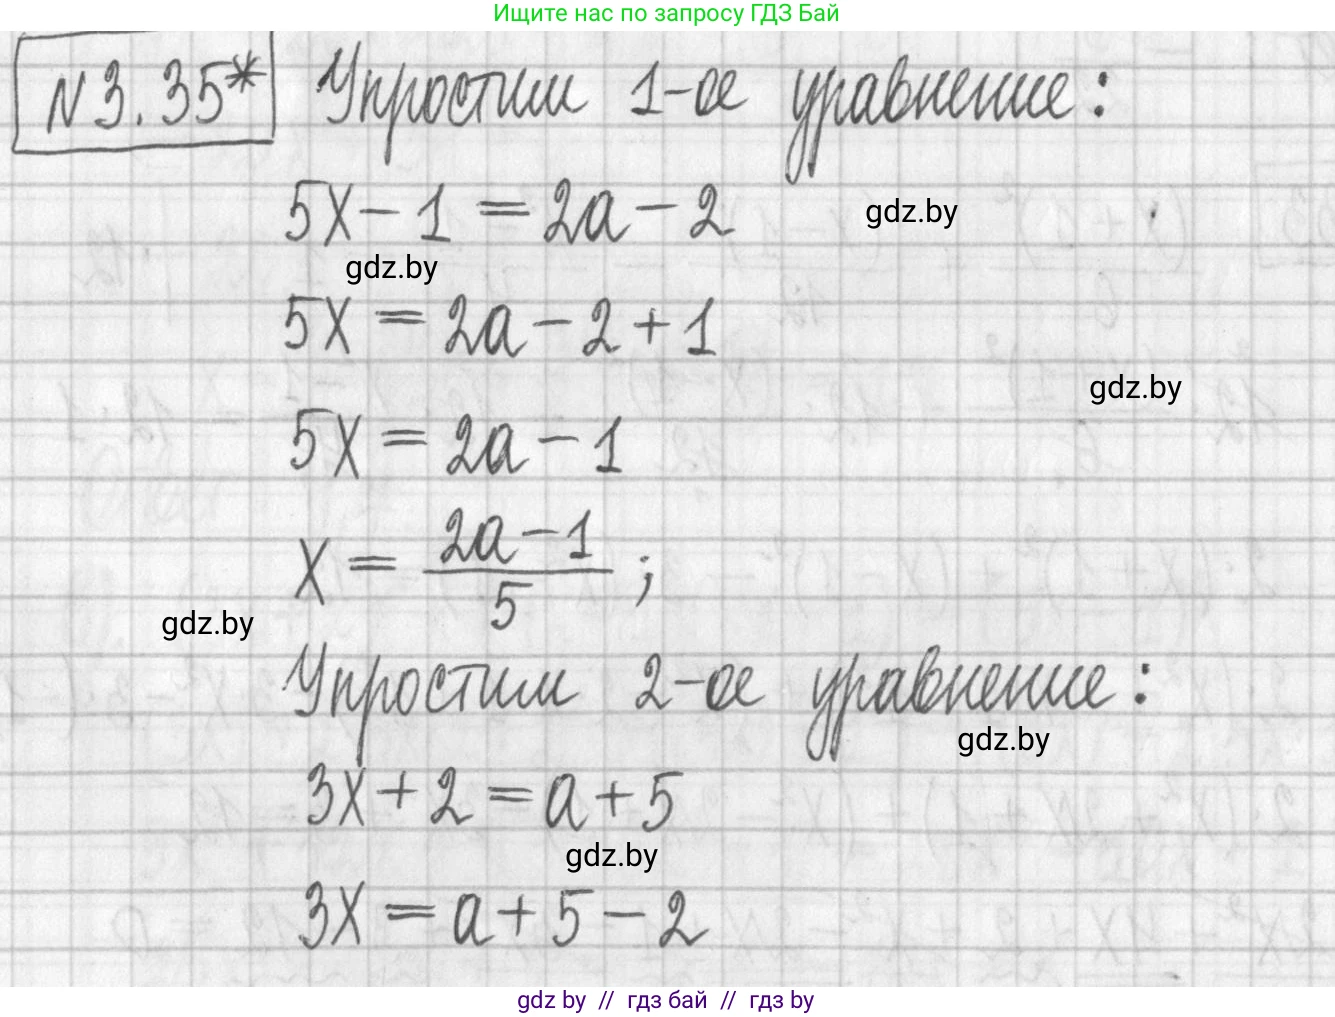 Ищите нас по запросу ГДЗ Бай
N3.35* Упростим 1-ое уравнение:
5x - 1 = 2a - 2
gdz.by
gdz.by
5x = 2a - 2 + 1
gdz.by
5x = 2a - 1
x = \frac{2a - 1}{5} ;
gdz.by
Упростим 2-ое уравнение:
gdz.by
3x + 2 = a + 5
gdz.by
3x = a + 5 - 2
gdz by // гдз бай // гдз by